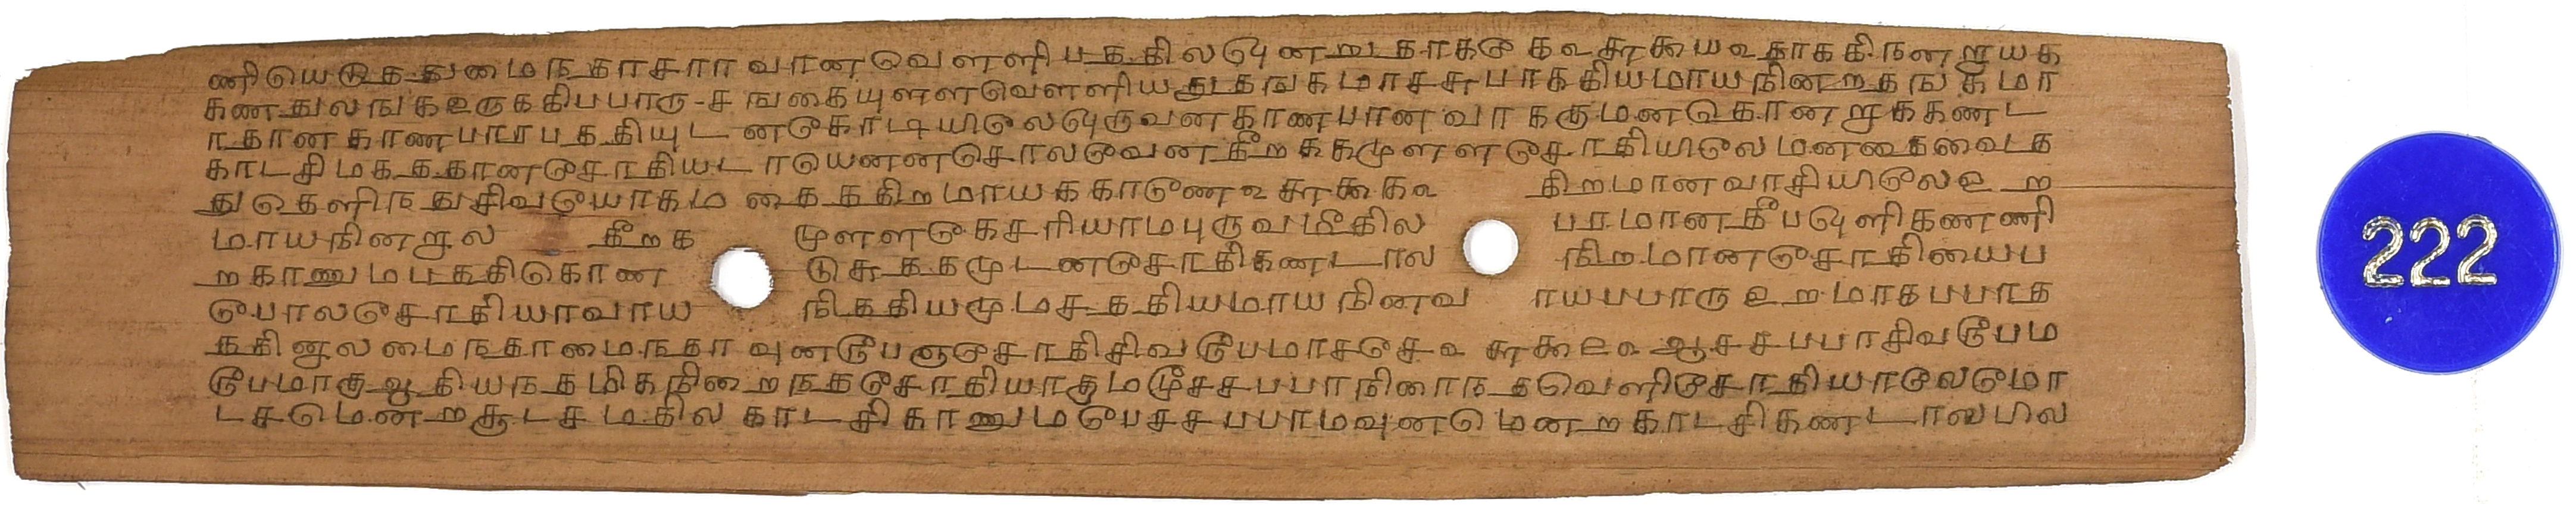 ணியெடுதது மைநதாசாரா வான வெளளி பததிலழு னறு காகடு க௨ சூ௯ய௨ தாககி நனறாயக
கண துலஙக உருககிபபாரு-ச ஙகையுளள வெளளிய துதஙகமாசசு பாககியமாய நினற தஙகமா
ாதான காண பாரபததியுட னகோடியிலே ழுருவன காணபான வாகருமன தொனறாககணட
காடசி மகததான சோதியடா யெனன சொலவேன தீறககமுளள சோதியிலே மனதை வைத
து தெளிநது சிவயோகம கைககிறமாயககாணே௨ சூ௯௧௨ திறமான வாசியிலே உற
மாயநினறால தீறக முளளகேசரியாம புருவ மீதில பரமான தீப ஒளி கணணி
றகாணும பததிகொண டு சுததமுடனசோதி கணடால நிறமான சோதியைப
போல சோதியாவாய நிததியமும சததியமாய நினவ ாயபபாரு உறமாகபபாத
ததினுல மைநதாமைநதா வுன ரூப ஞசோதி சிவரூபமாசசே௨ சூ௯௨௨ ஆசசபபா சிவரூபம
ரூபமாகு ஆதியநதமிக நிறைநத சோதியாகும மூசசபபா நிராநத வெளி சோதியாலேமோ
டசமெனற சூடசமதில காடசி காணும பேசசபபாமவுனமெனற காடசி கணடால பல
222